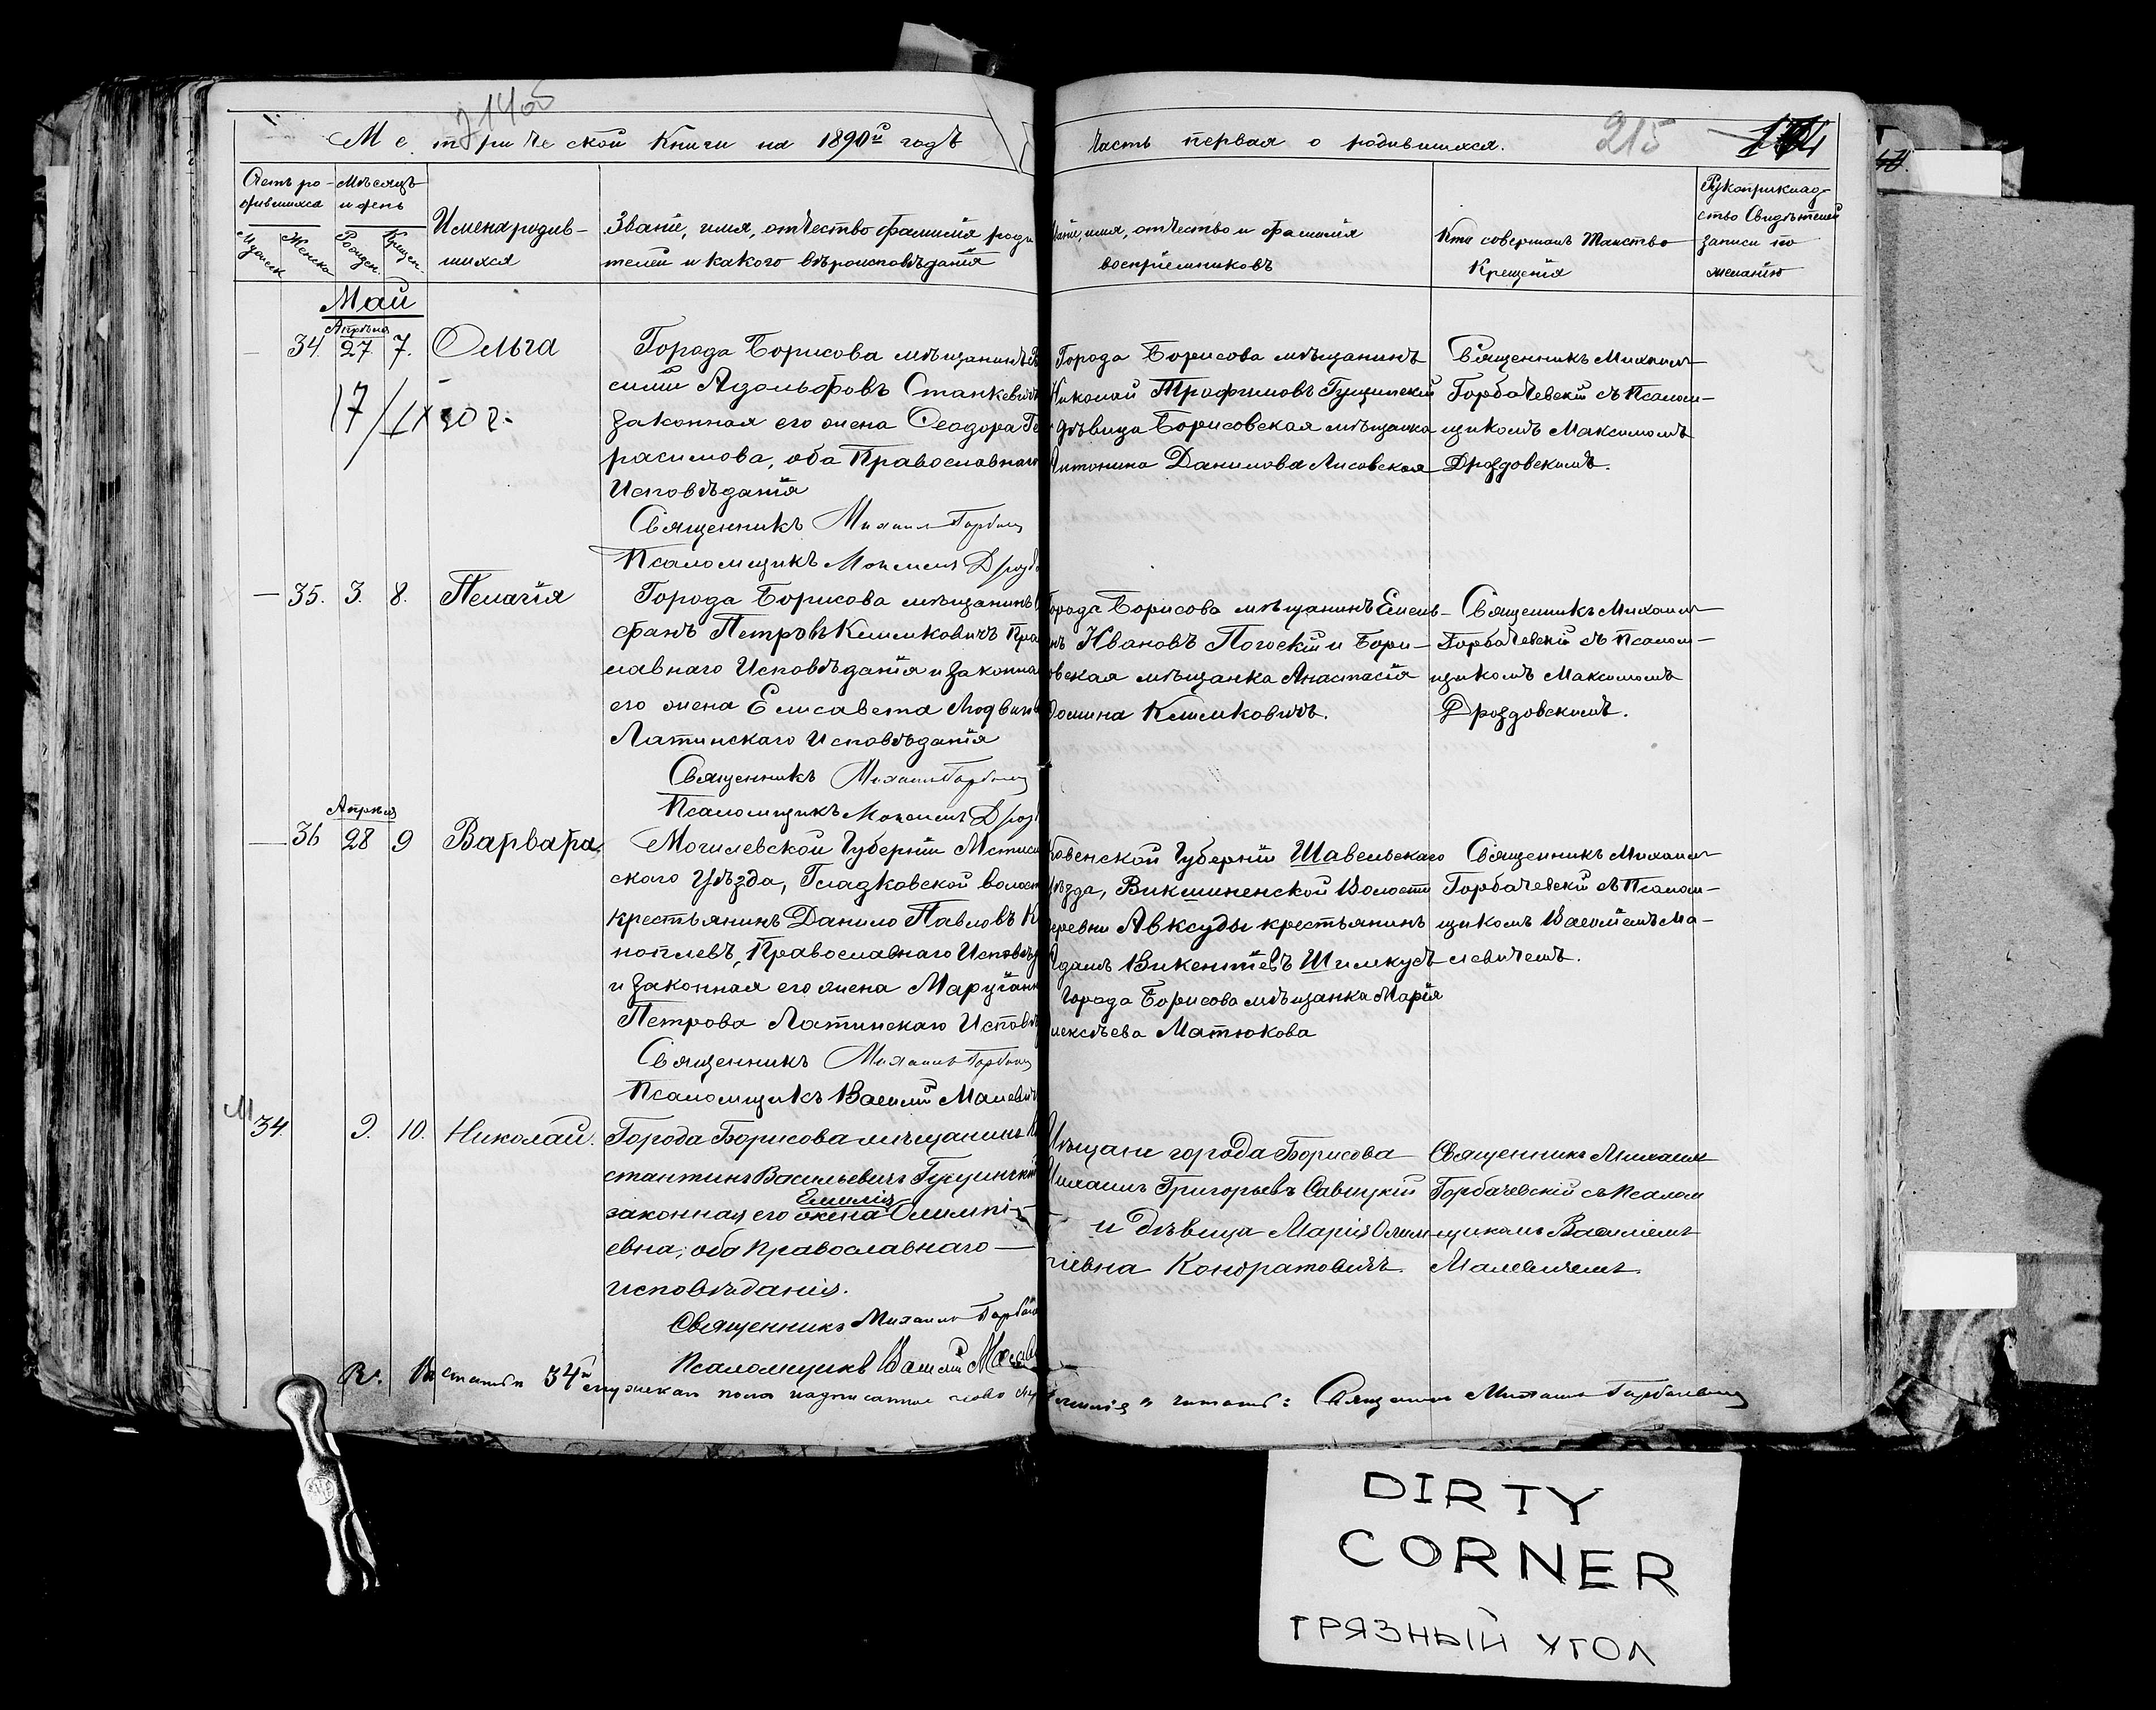 214об
Метрической Книги на 1890й годъ
Часть первая о родившихся.
215
Счетъ ро-
дившихся
Мѣсяцъ
и день
Мужеск
Женска
Рожден.
Крещен.
Имена родив-
шихся
Званіе, имя, отчество фамилія роди
телей и какого вѣроисповѣданія
имя, отчество и фамилія
воспріемниковъ
Кто совершалъ Таинство
Крещенія
Рукоприклад-
ство Свидѣтелей
записи по
желанію
Май
34.
Апрѣля
27
7.
Ольга
17/IX 90 г.
Города Борисова мѣщанинъ
силій Адольфовъ Станкевичъ
законная его жена Ѳеодора Ге
расимова, оба Православнаго
Исповѣданія
Священникъ Михаилъ Горбач
Псаломщикъ Максимъ Дрозд
Города Борисова мѣщанинъ
Николай Трофимовъ Гущинскій
дѣвица Борисовская мѣщанка
Антонина Данилова Лисовская
Священникъ Михаилъ
Горбачевскій съ Псалом-
щикомъ Максимомъ
Дроздовскимъ.
— 35.
3.
8.
Пелагія
Города Борисова мѣщанинъ
сфанъ Петровъ Климковичъ Пра
славнаго Исповѣданія и законна
его жена Елисавета Людвигов
Латинскаго Исповѣданія
Священникъ Михаилъ Горбач
Псаломщикъ Максимъ Дрозд
орода Борисова мѣщанинъ Емель-
нъ Ивановъ Погоскій и Бори-
овская мѣщанка Анастасія
омина Климковичъ.
Священникъ Михаилъ
Горбачевскій съ Псалом-
щикомъ Максимомъ
Дроздовскимъ.
— 36
Апрѣля
28
9
Варвара
Могилевской Губерніи Мстисл
скаго Уѣзда, Гладковской волост
крестьянинъ Данило Павловъ К
ноплевъ, Православнаго Исповѣд
и законная его жена Маруганн
Петрова Латинскаго Исповѣ
Священникъ Михаилъ Горбач
Псаломщикъ Василій Малевич
Ковенской Губерніи Шавельскаго
ѣзда, Викшненской Волости
еревни Авксуды крестьянинъ
Адамъ Викентіевъ Шимкусъ
города Борисова мѣщанка Марія
лексѣева Матюкова
Священникъ Михаилъ
Горбачевскій съ Псалом-
щикомъ Василіемъ Ма-
левичемъ.
М
34.
9.
10.
Николай.
Города Борисова мѣщанинъ
стантинъ Васильевичъ Гущинскій
Емилія
законная его жена Олимпі-
евна, оба православнаго —
исповѣданія.
Священникъ Михаилъ Горбач
Псаломщикъ Василій Малев
Мѣщане города Борисова
Михаилъ Григорьевъ Савицкій
и дѣвица Марія Олим
піевна Кондратовичъ.
Священникъ Михаилъ
Горбачевскій съ псалом
щикомъ Василіемъ
Малевичемъ.
Въ статьѣ 34й мужскаго пола надписанное слово
"Емилія" читать: Священникъ Михаилъ Горбачевскій
DIRTY
CORNER
ГРЯЗНЫЙ УГОЛ